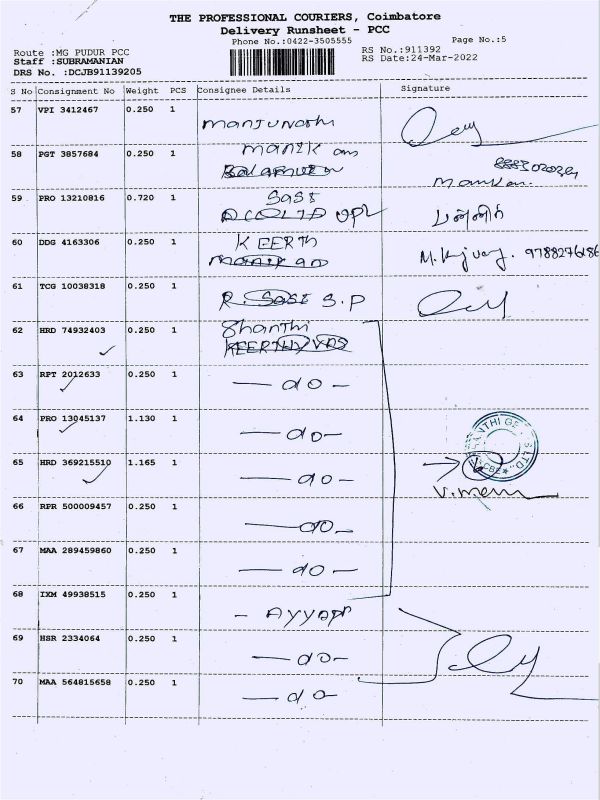 THE PROFESSIONAL COURIERS, Coimbatore
Delivery Runsheet - PCC
Phone No.:0422-3505555 Page No.:5
Route :MG PUDUR PCC RS No.:911392
Staff :SUBRAMANIAN RS Date:24-Mar-2022
DRS No. :DCJB91139205
S No Consignment No Weight PCS Consignee Details Signature
57 VPI 3412467 0.250 1
Manjunath
58 PGT 3857684 0.250 1 Manik
59 PRO 13210816 0.720 1 Sasi
60 DDG 4163306 0.250 1 KEERTH
9788276186
61 TCG 10038318 0.250 1
R Sasi S.P
62 HRD 74932403 0.250 1 Shanthi
KEERTHI
63 RPT 2012633 0.250 1
— do —
64 PRO 13045137 1.130 1
— do —
65 HRD 369215510 1.165 1
— do —
66 RPR 500009457 0.250 1
— do —
67 MAA 289459860 0.250 1
— do —
68 IXM 49938515 0.250 1
- Ayyapp
69 HSR 2334064 0.250 1
— do —
70 MAA 564815658 0.250 1
— do —